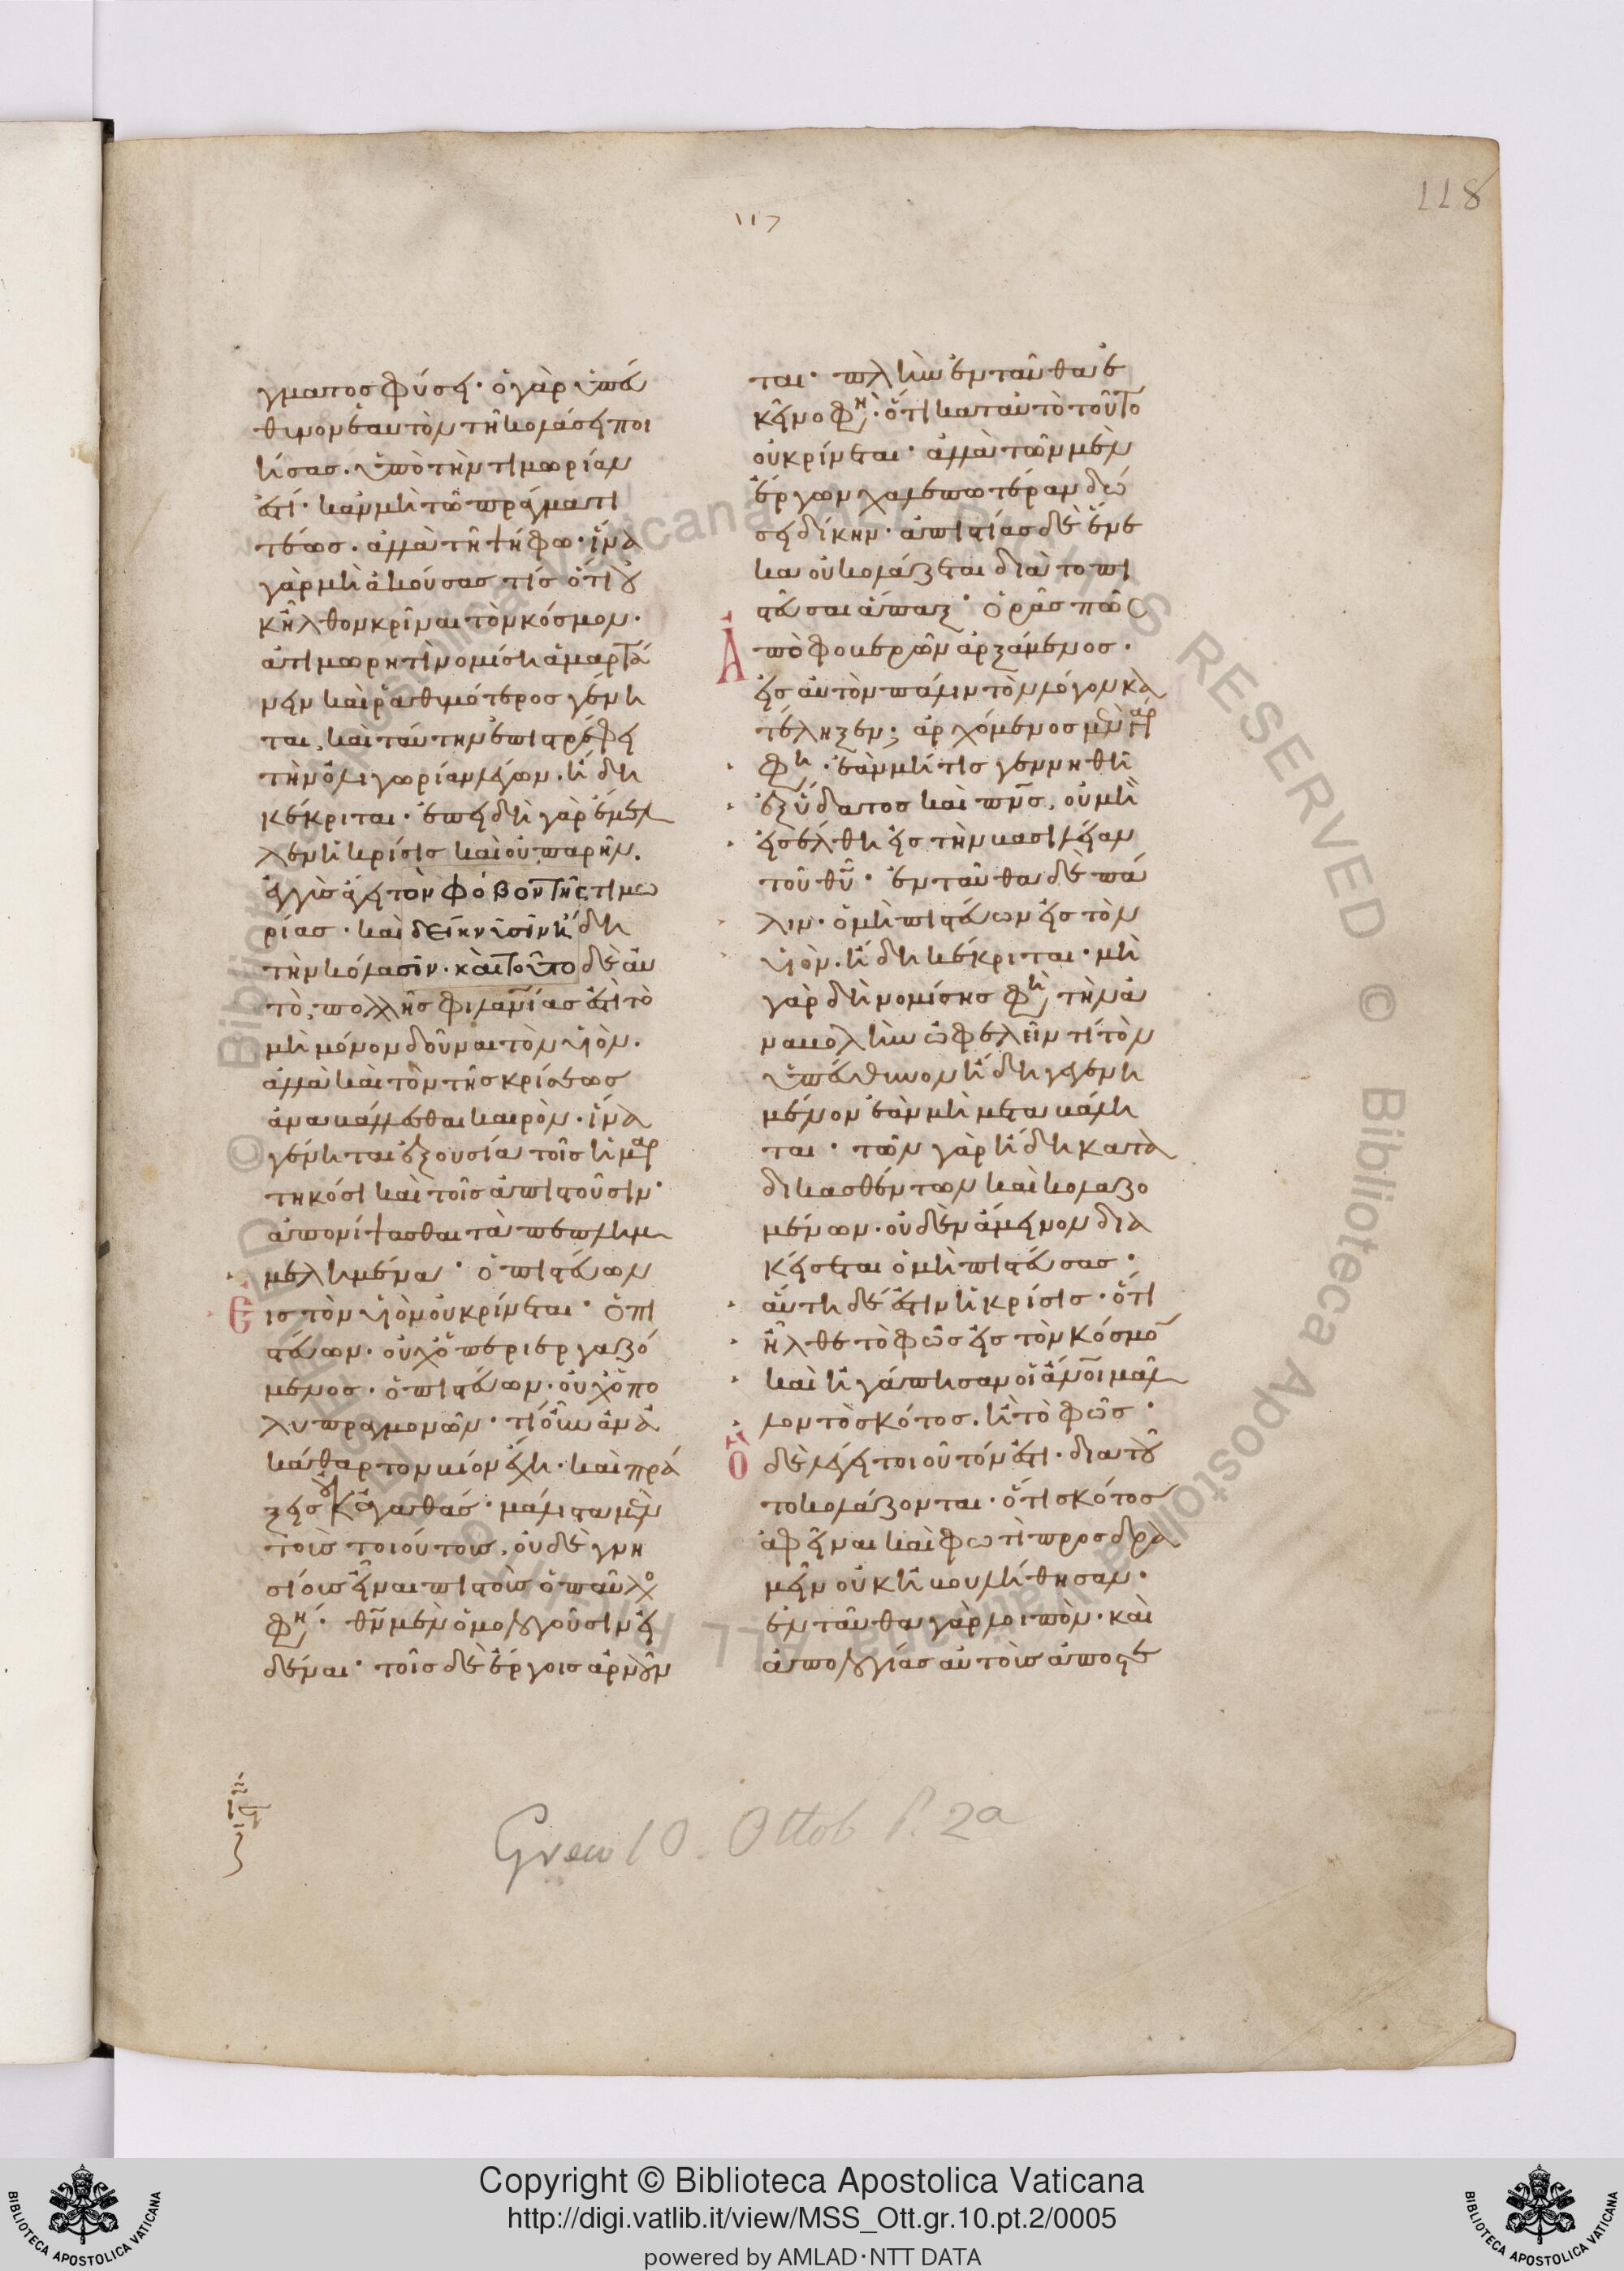 118
117
γματος φύσει· ὁ γὰρ ὑπεύ
θυνον ἑαυτὸν τῆ κολάσει ποι
ήσας. ὑπὸ τὴν τιμωρίαν
ἐστί· κἂν μὴ τῶ πράγματι
τέως. ἀλλὰ τῆ ψήφω· ἵνα
γὰρ μὴ ἀκούσας τίς ὅτι οὐ
κ ἦλθον κρῖναι τὸν κόσμον·
ἀτιμωρητὶ νομίση ἁμαρτά
νειν καὶ ῥαθυμότερος γένη
ται, καὶ ταύτην ἐπιστρέφει
τὴν ὀλιγωρίαν λέγων. ἤδη
κέκριται· ἐπειδὴ γὰρ ἔμελ
λεν ἡ κρίσις καὶ οὐ παρῆν.
ἐγγὺς ἄγει τὸν φόβον τῆς τιμω
ρίας· καὶ δείκνυσιν ἤδη
τὴν κόλασιν· καὶ τοῦτο δὲ αὐ
τὸ, πολλῆς φιλανίας ἐστὶ τὸ
μὴ μόνον δοῦναι τὸν υἱὸν.
ἀλλὰ καὶ τὸν τῆς κρίσεως
ἀναβάλλεσθαι καιρὸν· ἵνα
γένηται ἐξουσία τοῖς ἡμαρ
τηκόσι καὶ τοῖς ἀπιστοῦσιν·
ἀπονίψασθαι τὰ πεπλημ
μελημένα· ὁ πιστεύων
εἰς τὸν υἱὸν οὐ κρίνεται· Ὁ πι
στεύων· οὐχ ὁ περιεργαζό
μενος· ὁ πιστεύων· οὐχ ὁ πο
λυπραγμονῶν· τί οὖν ἂν ἀ
κάθαρτον βίον ἔχη· καὶ πρά
ξεις οὐκ ἀγαθάς· μάλιστα μὲν
τοὺς τοιούτους, οὐδὲ γνη
σίους εἶναι πιστοὺς ὁ παῦλος
φη· θν μὲν ὁμολογοῦσιν εἰ
δέναι· τοῖς δὲ ἔργοις ἀρνοῦν
ται· πλὴν ἐνταῦθα ἐ
κεῖνο φη· ὅτι κατ αὐτὸ τοῦτο
οὐ κρίνεται· ἀλλὰ τῶν μὲν
ἔργων χαλεπωτέραν δώ
σει δίκην· ἀπιστίας δὲ ἕνε
κα οὐ κολάζεται διὰ τὸ πι
στεῦσαι ἅπαξ· ὁρᾶς πῶς
ἀπὸ φοβερῶν ἀρξάμενος·
εἰς αὐτὸν πάλιν τὸν λόγον κα
τέληξεν; ἀρχόμενος μὲν γὰρ
φη· ἐὰν μή τις γεννηθῆ
ἐξ ὕδατος καὶ πνς, οὐ μὴ
εἰσέλθη εἰς τὴν βασιλείαν
τοῦ θυ· ἐνταῦθα δὲ πά
λιν· ὁ μὴ πιστεύων εἰς τὸν
υἱὸν. ἤδη κέκριται· μὴ
γὰρ δὴ νομίσης φη τὴν ἀ
ναβολὴν ὠφελεῖν τί τὸν
ὑπεύθυνον ἤδη γεγενη
μένον ἐὰν μὴ μεταβάλη
ται· τῶν γὰρ ἤδη κατα
δικασθέντων καὶ κολαζο
μένων. οὐδὲν ἄμεινον δια
κείσεται ὁ μὴ πιστεύσας·
αὕτη δέ ἐστιν ἡ κρίσις· ὅτι
ἦλθε τὸ φῶς εἰς τὸν κόσμον
καὶ ἠγάπησαν οἱ ἄνοι μᾶλ
λον τὸ σκότος. ἢ τὸ φῶς·
ὃ δὲ λέγει τοιοῦτόν ἐστι· διὰ τοῦ
το κολάζονται· ὅτι σκότος
ἀφεῖναι καὶ φωτὶ προσδρα
μεῖν οὐκ ἠβουλήθησαν·
ἐνταῦθα γὰρ λοιπὸν· καὶ
ἀπολογίας αὐτοὺς ἀποστε
Greco 10. Ottob P. 2a
Copyright © Biblioteca Apostolica Vaticana
http://digi.vatlib.it/view/MSS_Ott.gr.10.pt.2/0005
powered by AMLAD·NTT DATA
BIBLIOTECA APOSTOLICA VATICANA
BIBLIOTECA APOSTOLICA VATICANA